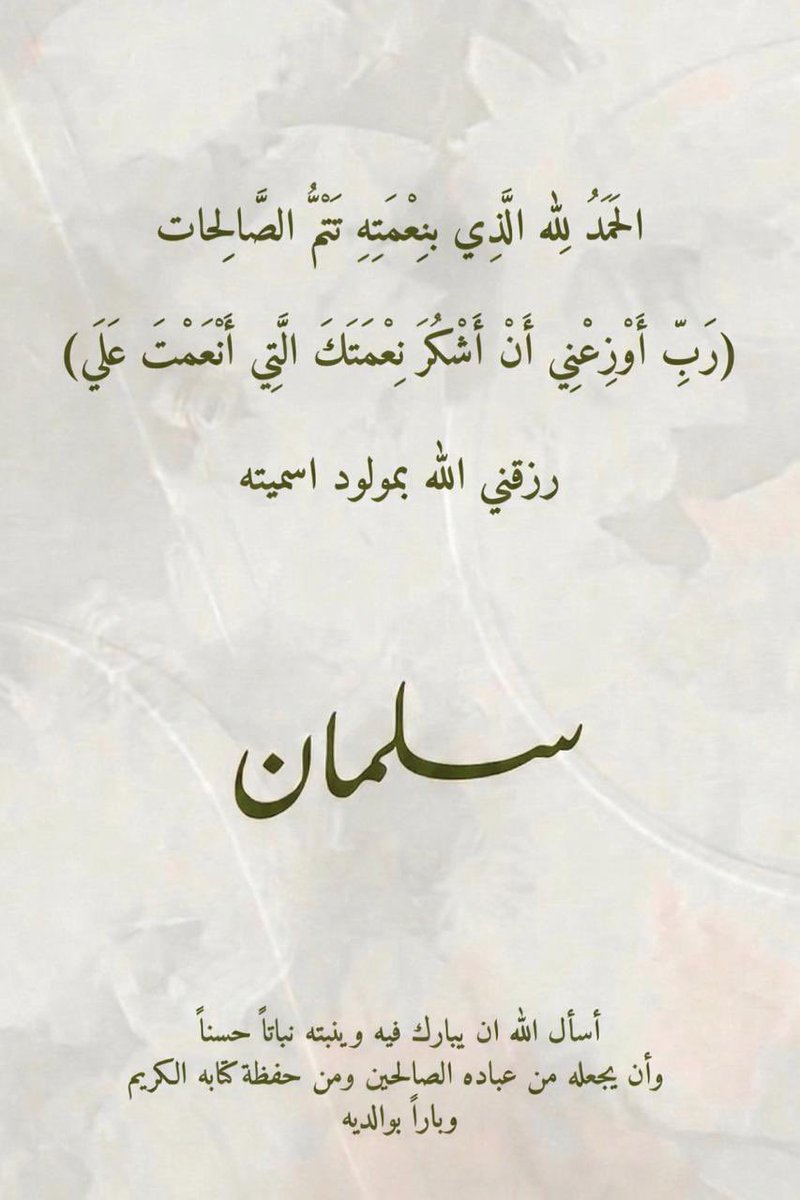 الحَمَدُ لِلّه الَّذِي بنِعْمَتِهِ تَتْمُّ الصَّالِحات
(رَبِّ أَوْزِعْنِي أَنْ أَشْكُرَ نِعْمَتَكَ الَّتِي أَنْعَمْتَ عَلَي)
رزقني الله بمولود اسميته
سلمان
أسأل الله ان يبارك فيه وينبته نباتاً حسناً
وأن يجعله من عباده الصالحين ومن حفظة كتابه الكريم
وباراً بوالديه